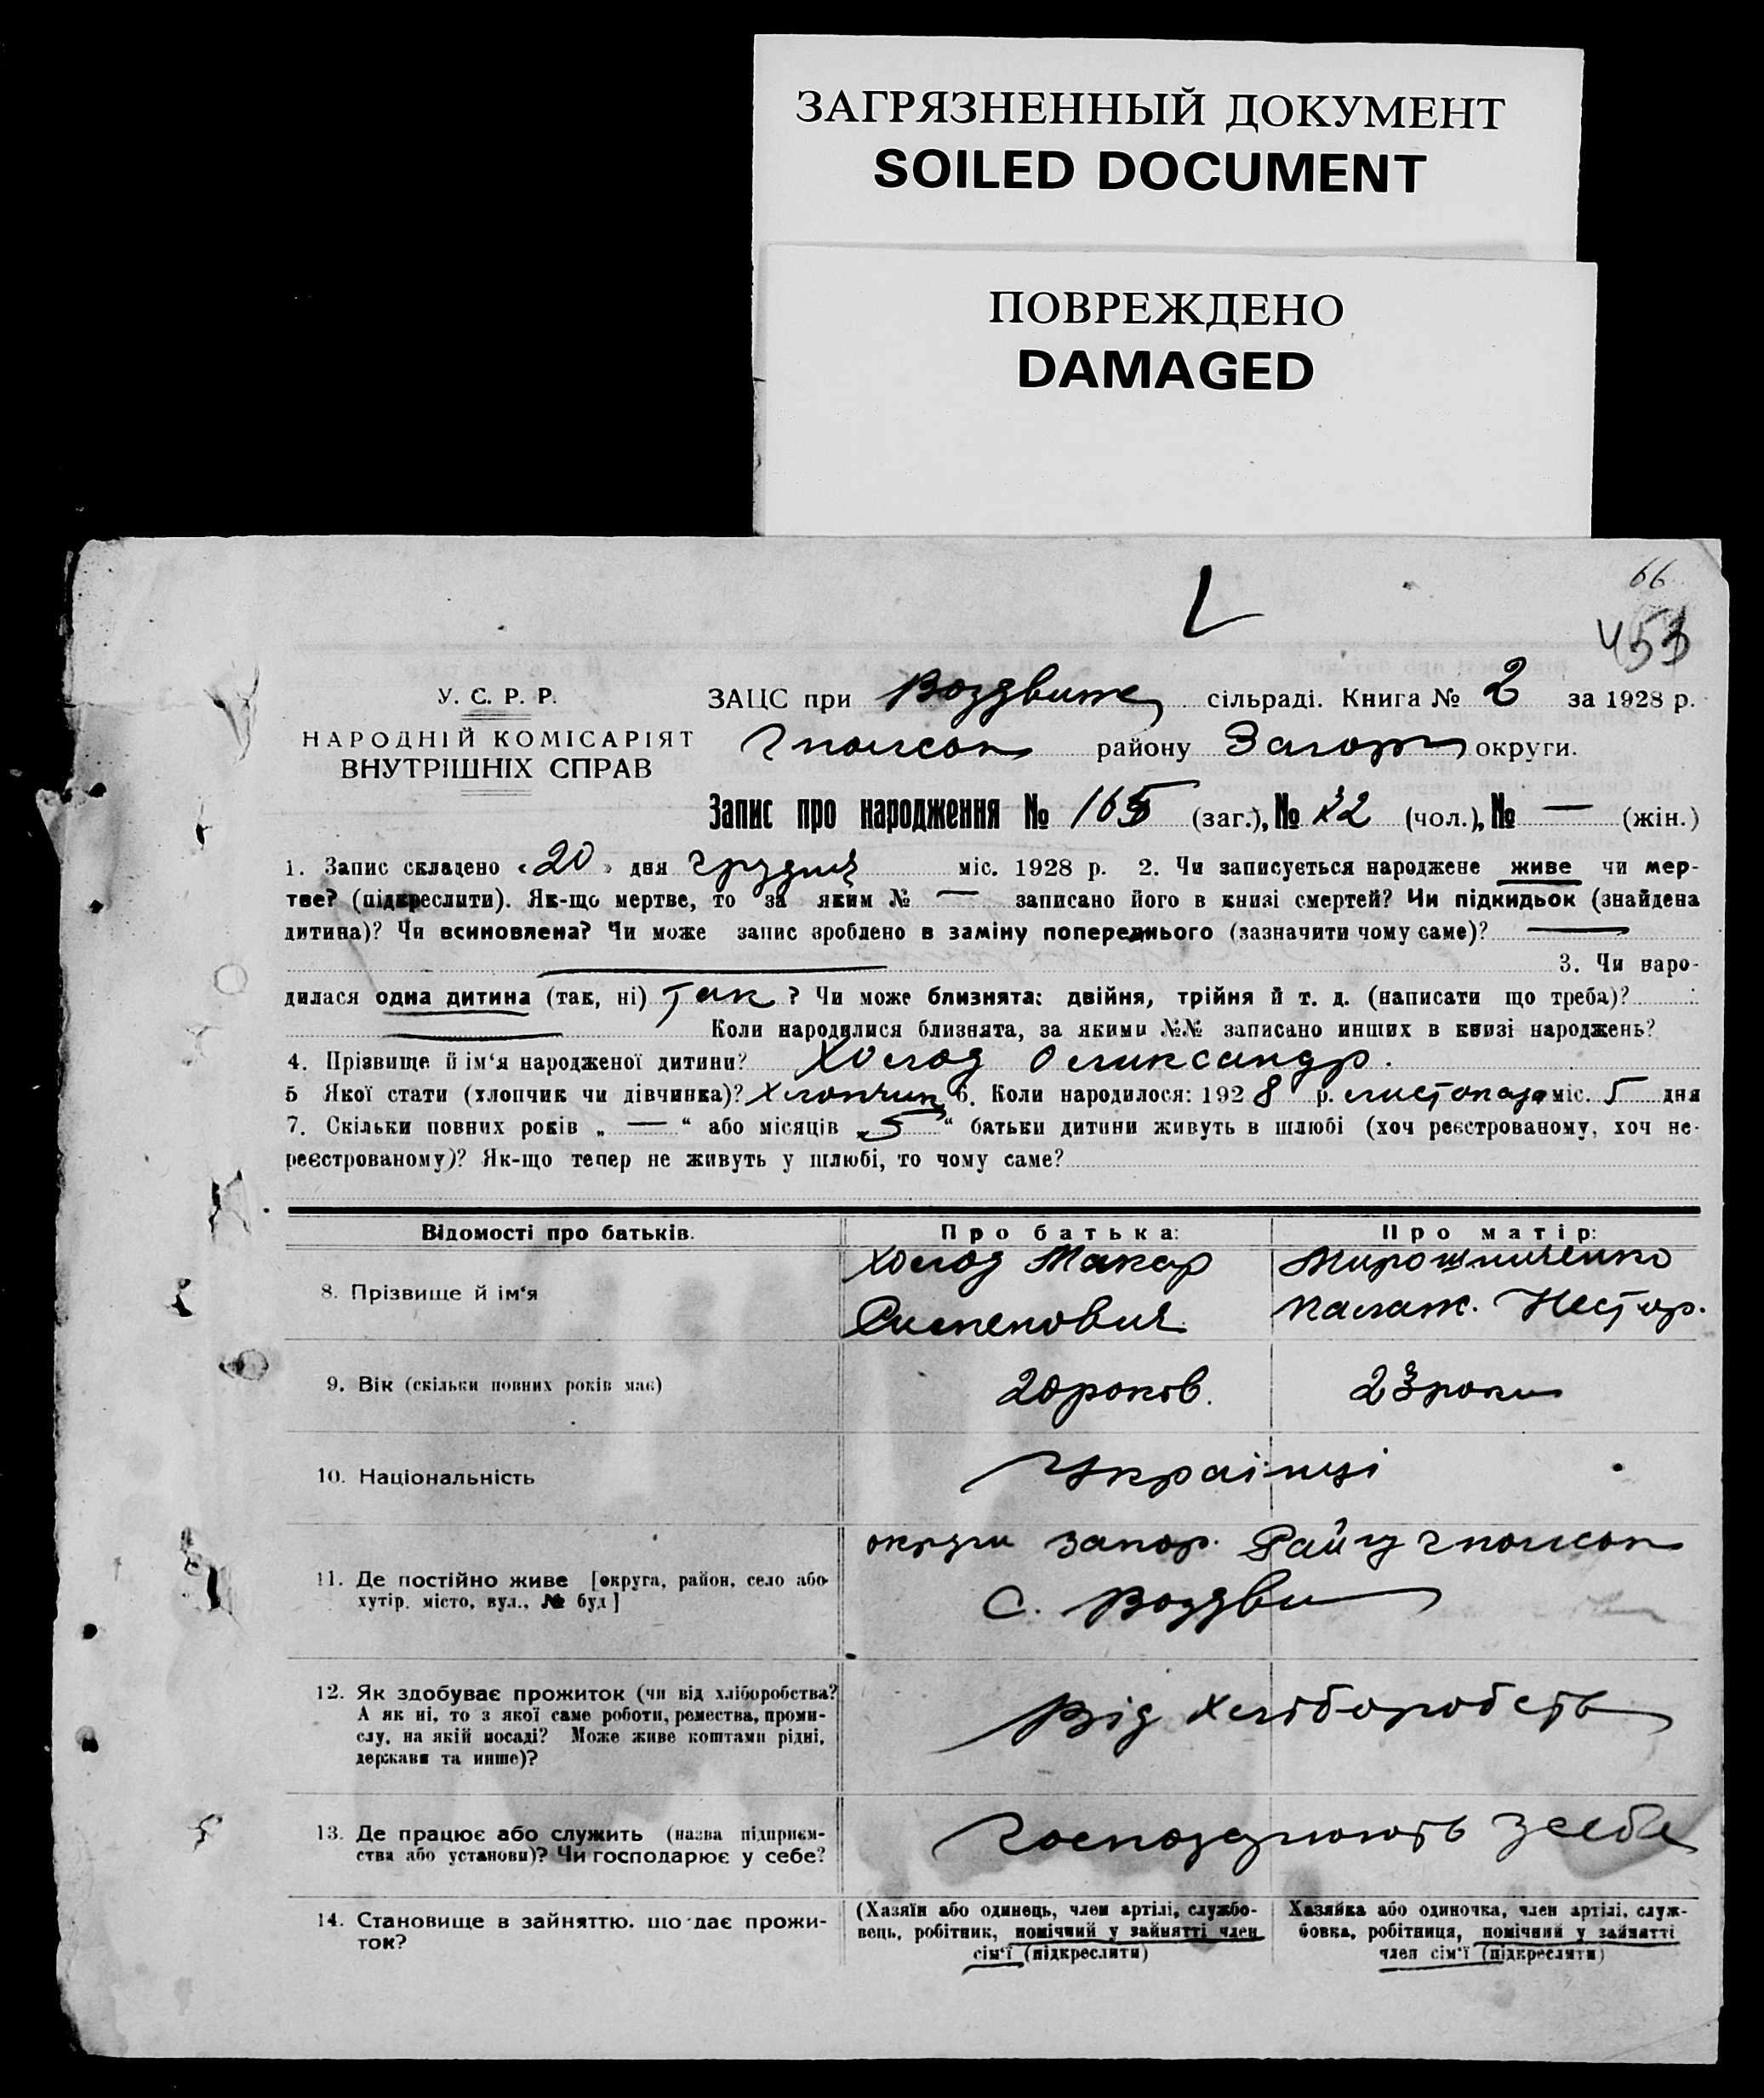 ЗАГРЯЗНЕННЫЙ ДОКУМЕНТ
SOILED DOCUMENT
ПОВРЕЖДЕНО
DAMAGED
66
453
У. С. Р. Р.
НАРОДНІЙ КОМІСАРІЯТ
ВНУТРІШНІХ СПРАВ
ЗАЦС при Воздвиж сільраді. Книга № 2 за 1928 р.
району Запор округи.
Запис про народження № 165 (заг.), № (чол.), № — (жін.)
1. Запис складено «20» дня грудня міс. 1928 р. 2. Чи записується народжене живе чи мер-
тве? (підкреслити). Як-що мертве, то за яким № — записано його в книзі смертей? Чи підкидьок (знайдена
дитина)? Чи всиновлена? Чи може запис зроблено в заміну попереднього (зазначити чому саме)? —
3. Чи наро-
дилася одна дитина (так, ні) Так ? Чи може близнята: двійня, трійня й т. д. (написати що треба)?
— Коли народилися близнята, за якими №№ записано инших в книзі народжень?
4. Прізвище й ім‘я народженої дитини? Холод Олександр.
5 Якої стати (хлопчик чи дівчинка)? Хлопчик 6. Коли народилося: 1928 р. листопада міс. 5 дня
7. Скільки повних років „ — “ або місяців „ 5 “ батьки дитини живуть в шлюбі (хоч реєстрованому, хоч не-
реєстрованому)? Як-що тепер не живуть у шлюбі, то чому саме?
Відомості про батьків. Про батька: Про матір:
8. Прізвище й ім‘я Холод Макар Мирошниченко
Палаж. Нестор.
9. Вік (скільки повних років має) 20 років. 23 роки
10. Національність Українці
округи Запор. Району
11. Де постійно живе [округа, район, село або
хутір, місто, вул., № буд] с. Воздви
12. Як здобуває прожиток (чи від хліборобства?
А як ні, то з якої саме роботи, ремества, проми-
слу, на якій посаді? Може живе коштами рідні,
держави та инше)? Від хліборобств
13. Де працює або служить (назва підприєм-
ства або установи)? Чи господарює у себе?
14. Становище в зайняттю, що дає прожи-
ток?
(Хазяїн або одинець, член артілі, службо-
вець, робітник, помічний у зайнятті член
сім‘ї (підкреслити)
Хазяйка або одиночка, член артілі, служ-
бовка, робітниця, помічний у зайнятті
член сім‘ї (підкреслити)